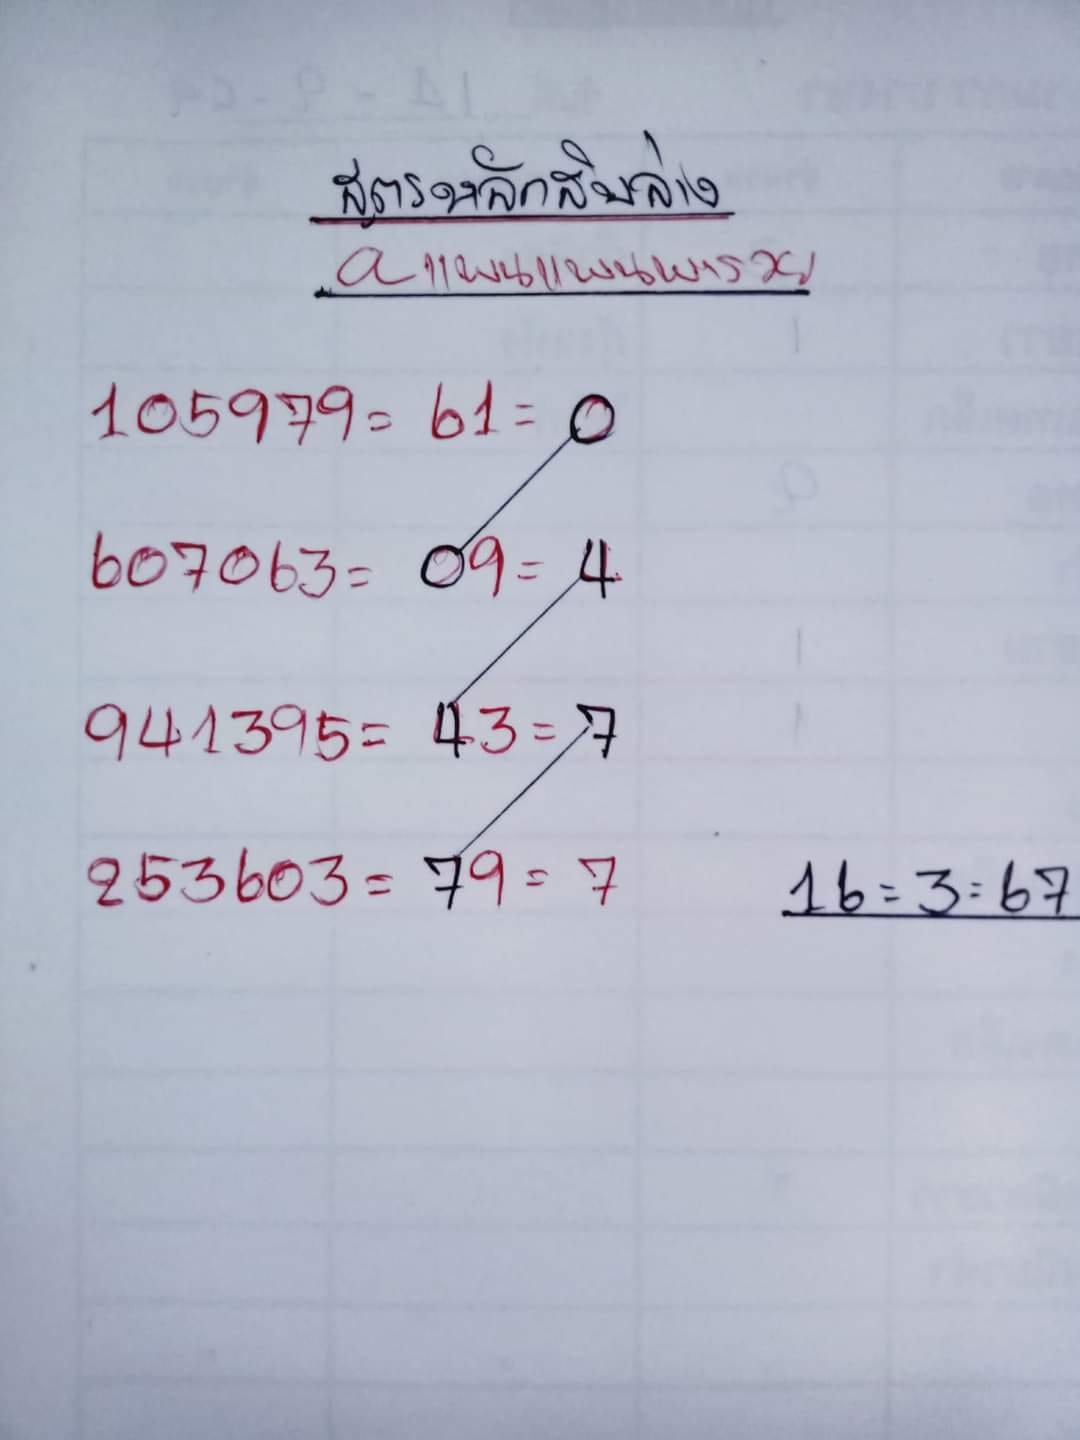 สูตรหลักสิบล่าง
aแพนแพนพารวย
105979= 61= 0
607063= 09= 4
941395= 43= 7
253603= 79= 7
16=3=67